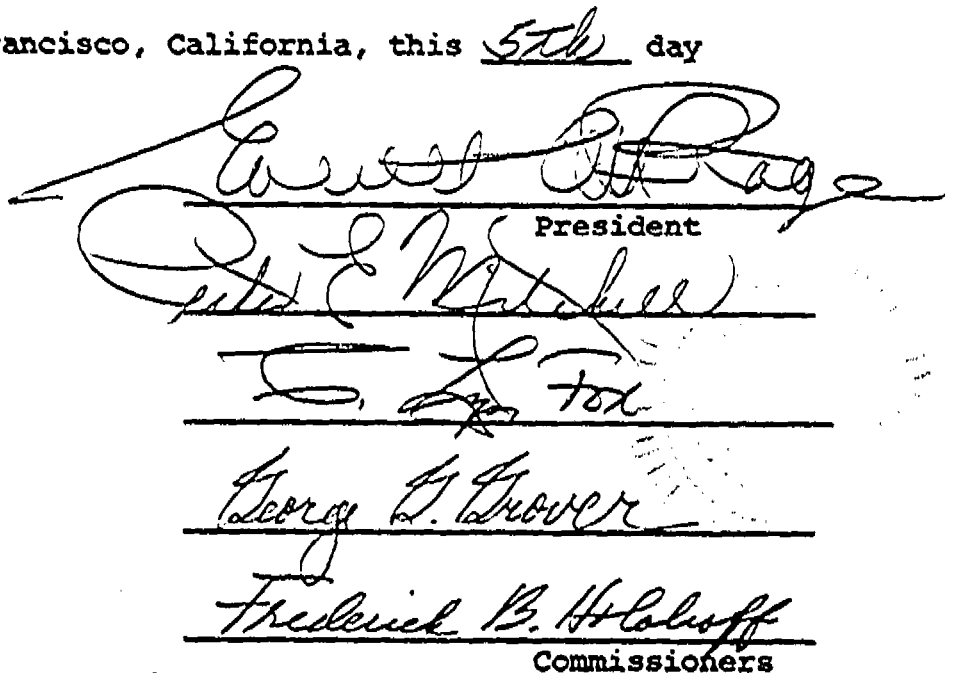 rancisco, California, this 5th day
Everett C. McKeage
President
Peter E. Mitchell
Fox
George G. Grover
Frederick B. Holoboff
Commissioners